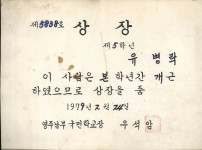 제5838호
상장
제5학년
유병락
이 사람은 본 학년간 개근
하였으므로 상장을 줌
1979년 2월 24일
영주남부 국민학교장 우석암